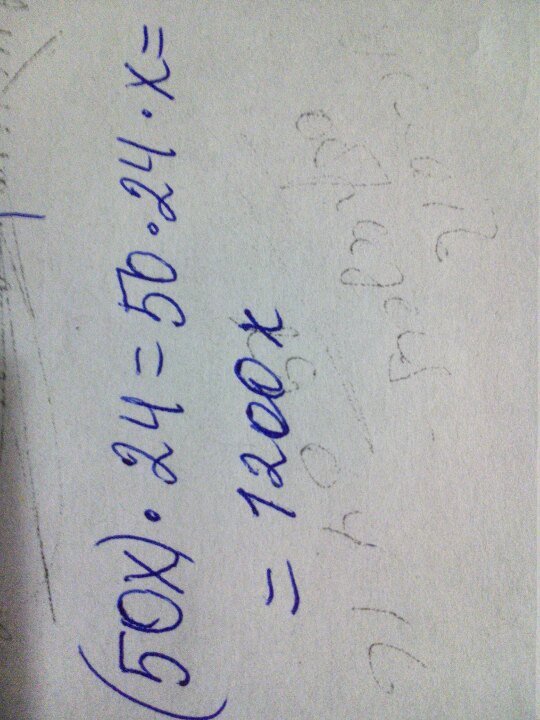 (50x)·24=50·24·x=
=1200x